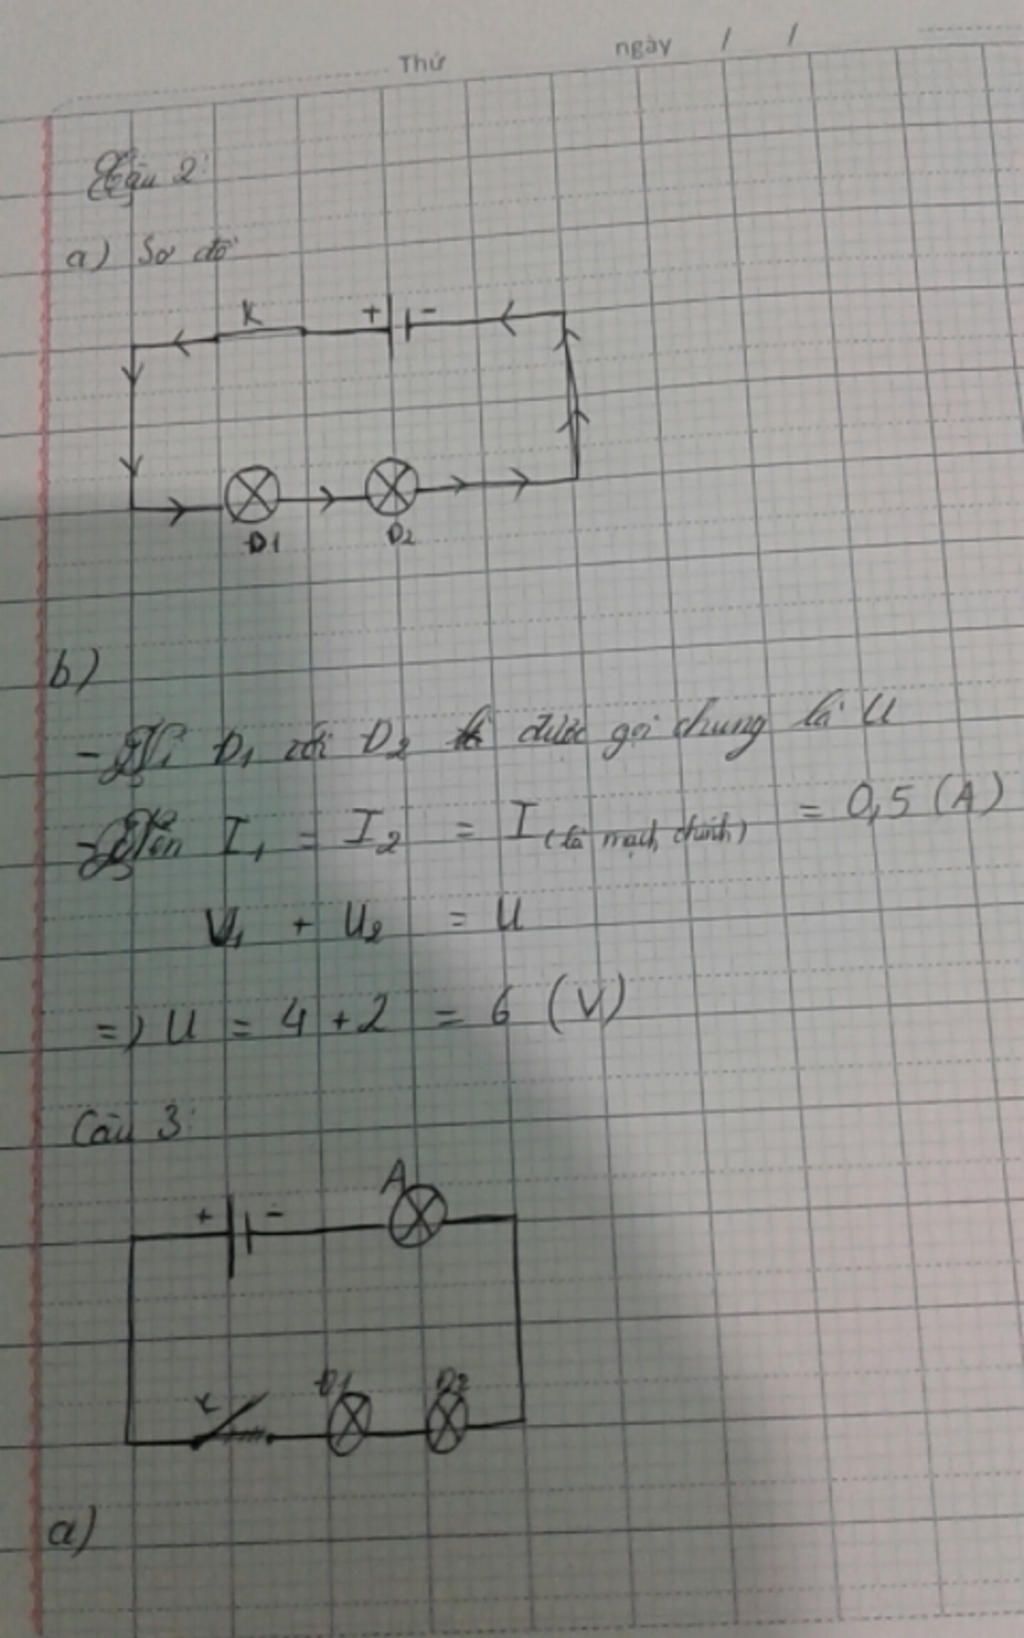 Thứ ngày / /
Câu 2:
a) Sơ đồ
K + -
Đ1 Đ2
b)
- Vì Đ1 với Đ2 được gọi chung là U
- Nên I1 = I2 = I (là mạch chính) = 0,5 (A)
U1 + U2 = U
=> U = 4 + 2 = 6 (V)
Câu 3:
+ - A
K Đ1 Đ2
a)